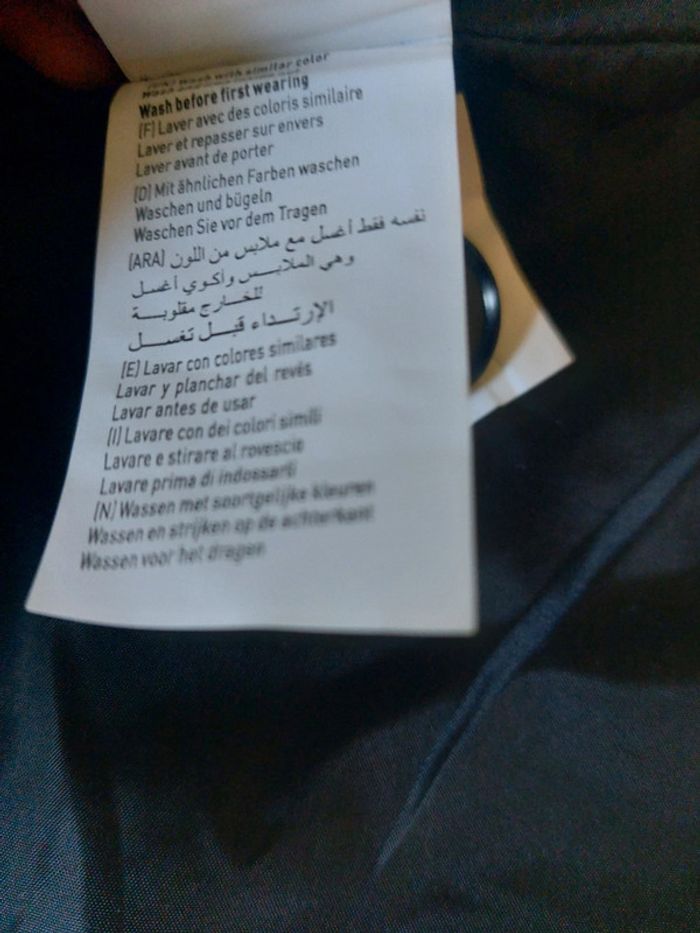 Wash with similar color
Wash before first wearing
(F) Laver avec des coloris similaire
Laver et repasser sur envers
Laver avant de porter
(D) Mit ähnlichen Farben waschen
Waschen und bügeln
Waschen Sie vor dem Tragen
(ARA) نفسه فقط أغسل مع ملابس من اللون
وهي الملابس وأكوي أغسل
للخارج مقلوبة
الإرتداء قبل تغسل
(E) Lavar con colores similares
Lavar y planchar del revés
Lavar antes de usar
(I) Lavare con dei colori simili
Lavare e stirare al rovescio
Lavare prima di indossarli
(N) Wassen met soortgelijke kleuren
Wassen en strijken op de achterkant
Wassen voor het dragen